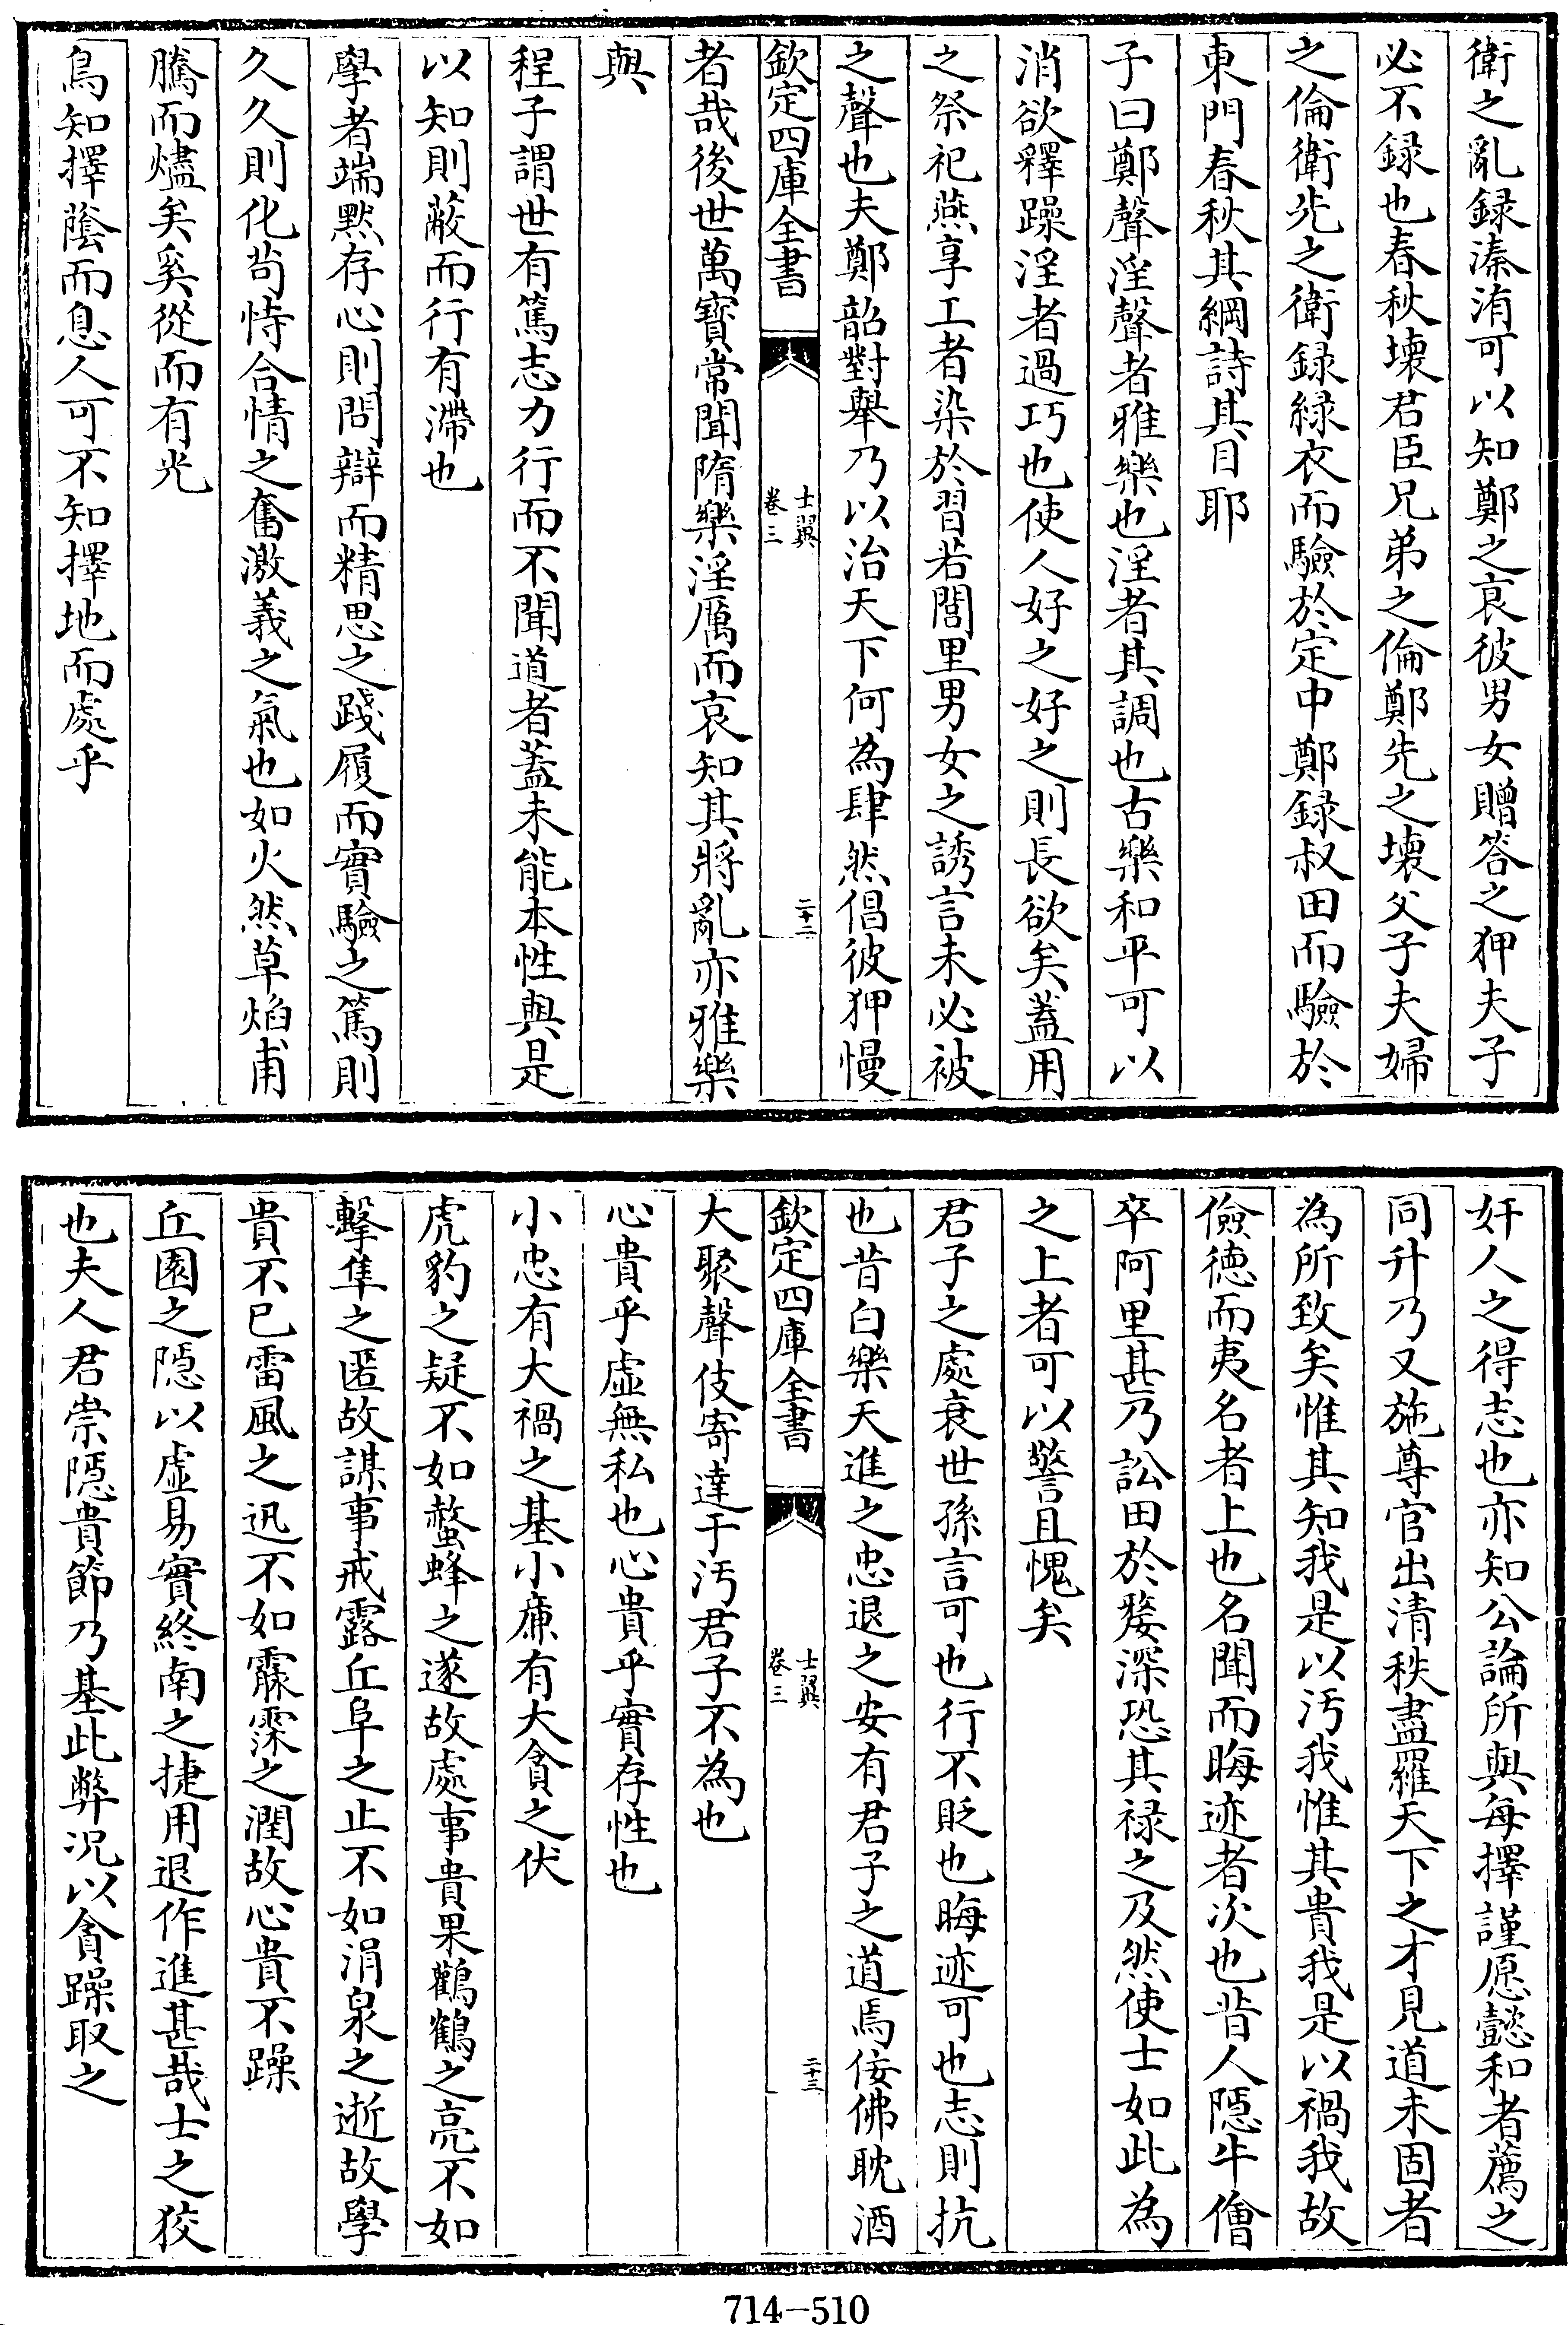 衛之亂録溱洧可以知鄭之哀彼男女贈答之狎夫子
必不録也春秋壊君臣兄弟之倫鄭先之壊父子夫婦
之倫衛先之衛録緑衣而驗於定中鄭録叔田而驗於
東門春秋其綱詩其目耶
子曰鄭聲淫聲者雅樂也淫者其調也古樂和平可以
消欲釋躁淫者過巧也使人好之好之則長欲矣蓋用
之祭祀燕享工者染於習若閭里男女之誘言未必被
之聲也夫鄭韶對舉乃以治天下何為肆然倡彼狎慢
欽定四庫全書
士翼
卷三
二十二
者哉後世萬寳常聞隋樂淫厲而哀知其將亂亦雅樂
與
程子謂世有篤志力行而不聞道者蓋未能本性與是
以知則蔽而行有滯也
學者端黙存心則問辯而精思之踐履而實驗之篤則
久久則化茍恃合情之奮激義之氣也如火然草焰甫
騰而燼矣奚從而有光
鳥知擇蔭而息人可不知擇地而處乎
奸人之得志也亦知公論所與每擇謹愿懿和者薦之
同升乃又施尊官出清秩盡羅天下之才見道未固者
為所致矣惟其知我是以汚我惟其貴我是以禍我故
儉徳而夷名者上也名聞而晦迹者次也昔人隱牛儈
卒阿里甚乃訟田於嫠深恐其禄之及然使士如此為
之上者可以警且愧矣
君子之處衰世孫言可也行不貶也晦迹可也志則抗
也昔白樂天進之忠退之安有君子之道焉佞佛耽酒
欽定四庫全書
士翼
卷三
二十三
大聚聲伎寄達于汚君子不為也
心貴乎虚無私也心貴乎實存性也
小忠有大禍之基小廉有大貪之伏
虎豹之疑不如螫蜂之遂故處事貴果鸛鶴之亮不如
擊隼之匿故謀事戒露丘阜之止不如涓泉之逝故學
貴不已雷風之迅不如霡霂之潤故心貴不躁
丘園之隱以虚易實終南之捷用退作進甚哉士之狡
也夫人君崇隱貴節乃基此弊况以貪躁取之
714-510